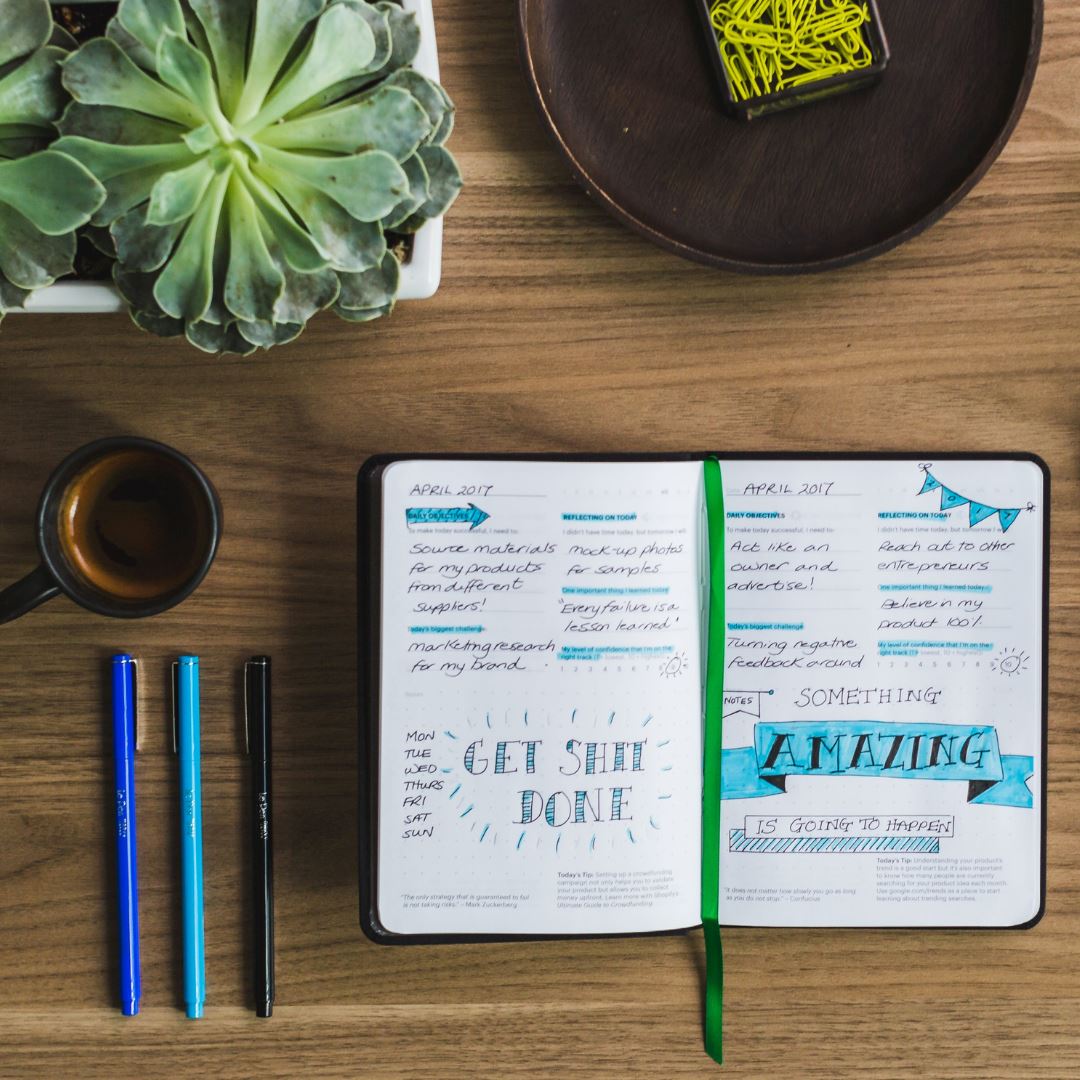 APRIL 2017
DAILY OBJECTIVES
To make today successful, I need to:
Source materials
for my products
from different
suppliers!
Today's biggest challenge
marketing research
for my brand
REFLECTING ON TODAY
I didn't have time today, but tomorrow I will
mock-up photos
for samples
One important thing I learned today
"Every failure is a
lesson learned"
My level of confidence that I'm on the
right track (1 = lowest, 10 = highest)
1 2 3 4 5 6 7 8
Notes
MON
TUE
WED
THURS
FRI
SAT
SUN
GET SHIT
DONE
"The only strategy that is guaranteed to fail
is not taking risks." – Mark Zuckerberg
Today's Tip: Setting up a crowdfunding
campaign not only helps you to validate
your product but allows you to collect
money upfront. Learn more with Shopify's
Ultimate Guide to Crowdfunding.
APRIL 2017
DAILY OBJECTIVES
To make today successful, I need to:
Act like an
owner and
advertise!
Today's biggest challenge
Turning negative
feedback around
REFLECTING ON TODAY
I didn't have time today, but tomorrow I
Reach out to other
entrepreneurs
One important thing I learned today
Believe in my
product 100%
My level of confidence that I'm on the
right track (1 = lowest, 10 = highest)
1 2 3 4 5 6 7 8 9 10
NOTES
SOMETHING
AMAZING
IS GOING TO HAPPEN
"It does not matter how slowly you go as long
as you do not stop." – Confucius
Today's Tip: Understanding your product's
trend is a good start but it's also important
to know how many people are currently
searching for your product idea each month.
Use google.com/trends as a place to start
learning about trending searches.